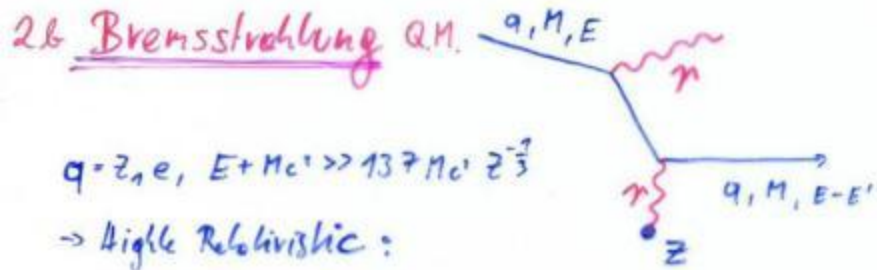 2b Bremsstrahlung Q.M.
q, M, E
γ
q = Z₁e, E + Mc² >> 137 Mc² Z^(-1/3)
γ
q, M, E-E'
→ Highly Relativistic:
Z